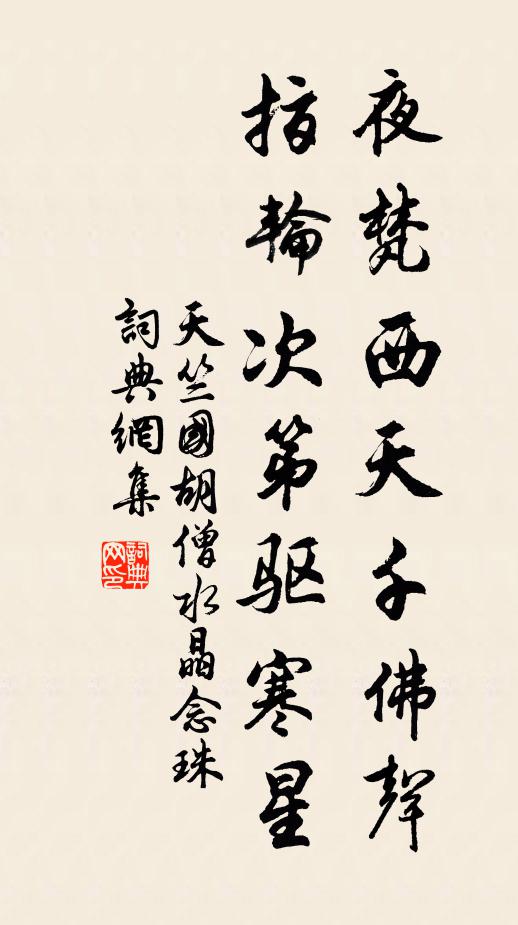 夜梵西天千佛聲
指輪次第驅寒星
天竺國胡僧水晶念珠
詞典網集
詞典网印